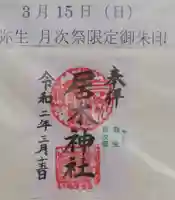 3月15日（日）
弥生 月次祭限定御朱印
奉拝
居木神社
令和二年三月十五日
弥生